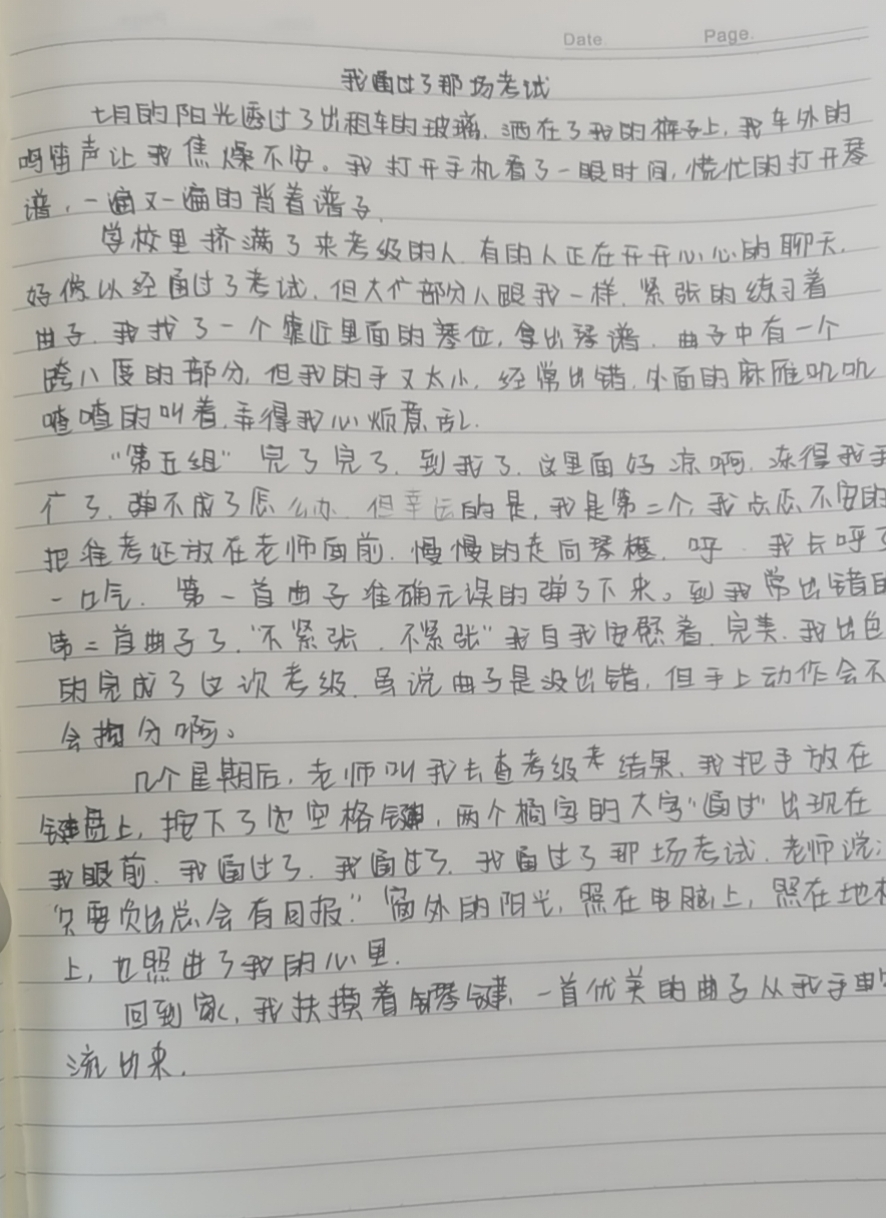 Date. Page.
我通过了那场考试
七月的阳光透过了出租车的玻璃,洒在了我的裤子上,我车外的
鸣笛声让我焦燥不安。我打开手机看了一眼时间,慌忙的打开琴
谱,一遍又一遍的背着谱子.
学校里挤满了来考级的人.有的人正在开开心心的聊天.
好像以经通过了考试.但大部分人跟我一样.紧张的练习着
曲子.我找了一个靠近里面的琴位,拿出琴谱.曲子中有一个
跨八度的部分,但我的手又太小.经常出错.外面的麻雀叽叽
喳喳的叫着.弄得我心烦意乱.
“第五组”完了完了.到我了.这里面好凉啊.冻得我手
了.弹不成了怎么办.但幸运的是,我是第二个,我忐忑不安的
把准考证放在老师面前.慢慢的走向琴椅.呼.我长呼了
一口气.第一首曲子准确无误的弹了下来。到我常出错的
第二首曲子了.“不紧张.不紧张”我自我安慰着.完美.我出色
的完成了这次考级.虽说曲子是没出错,但手上动作会不
会扣分啊。
几个星期后,老师叫我去查考级结果.我把手放在
键盘上,按下了空格键,两个橘字的大字“通过”出现在
我眼前.我通过了.我通过了.我通过了那场考试.老师说:
“只要付出总会有回报.”窗外的阳光,照在电脑上,照在地板
上,也照进了我的心里.
回到家,我扶摸着钢琴键.一首优美的曲子从我手中
流出来.